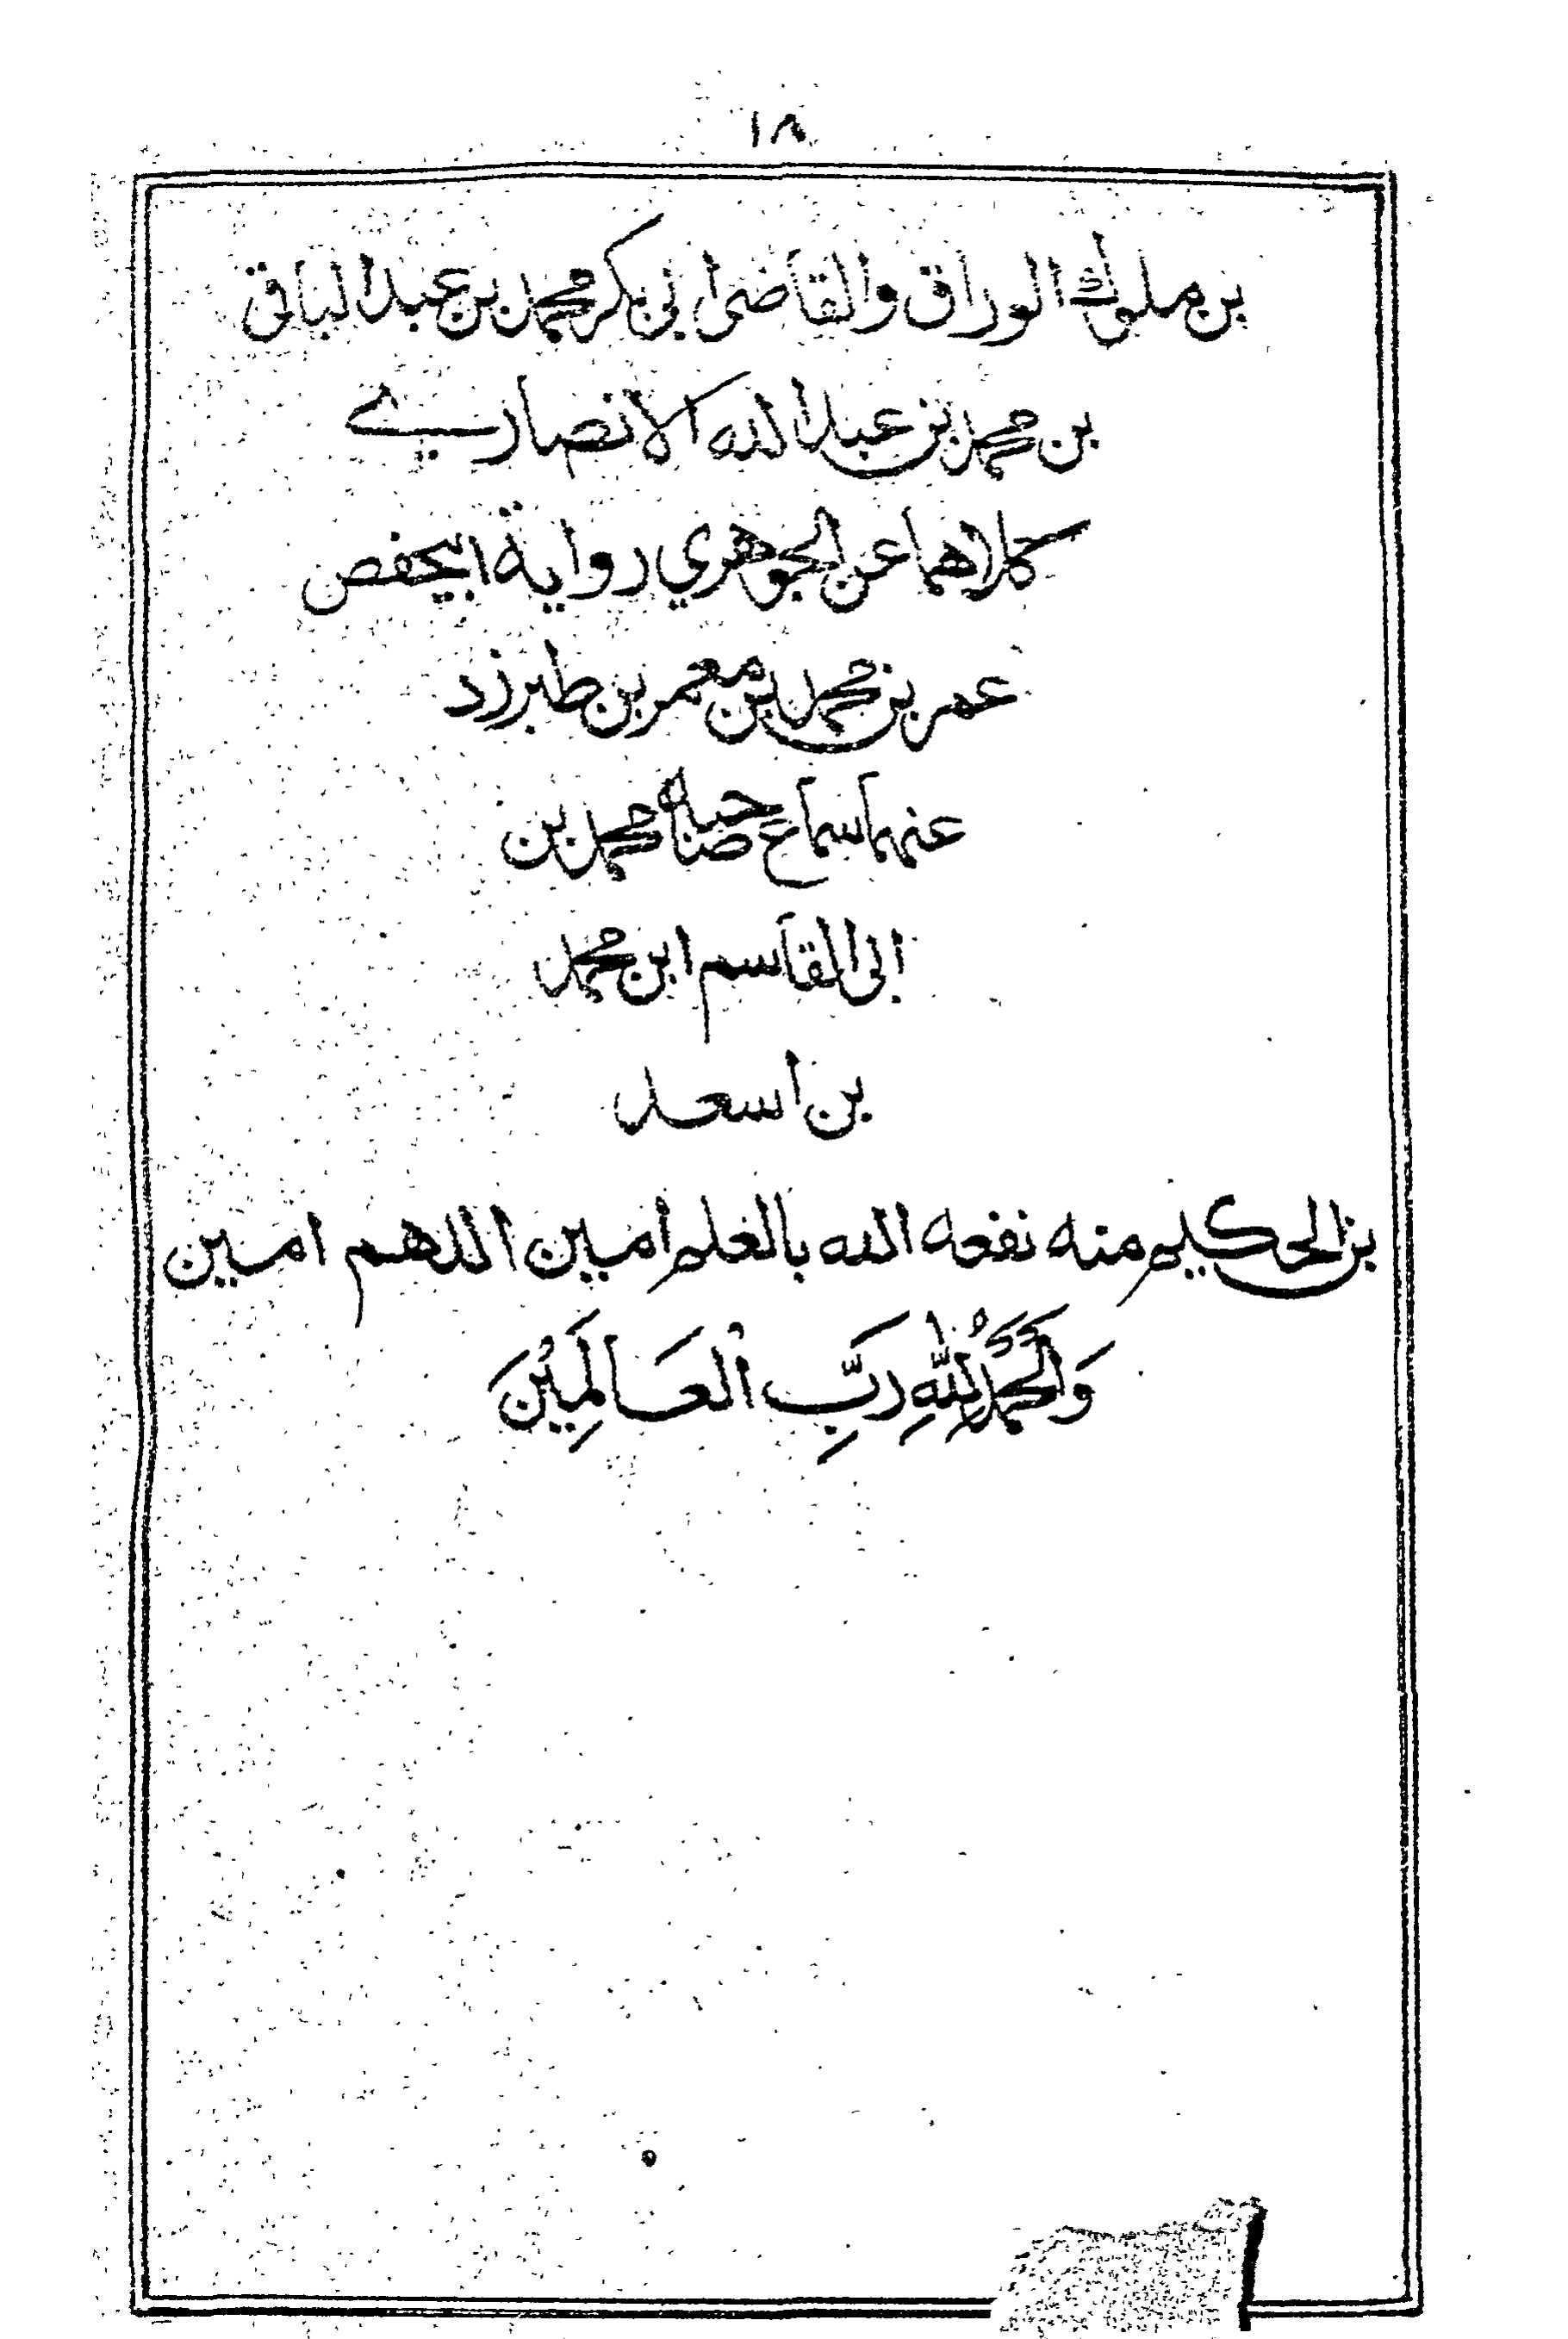 ١٨
بن ملوك الوراق والقاضى ابى بكر محمد بن عبد الباقى
بن محمد بن عبد الله الانصارى
كلاهما عن الجوهري رواية ابى حفص
عمر بن محمد بن معمر بن طبرزد
عنهما سماع صاحبه محمد بن
ابى القاسم ابن محمد
بن اسعد
بن الحكيم منه نفعه الله بالعلم امين اللهم امين
وَالحَمْدُ لِلّٰهِ رَبِّ الْعَالَمِيْنَ